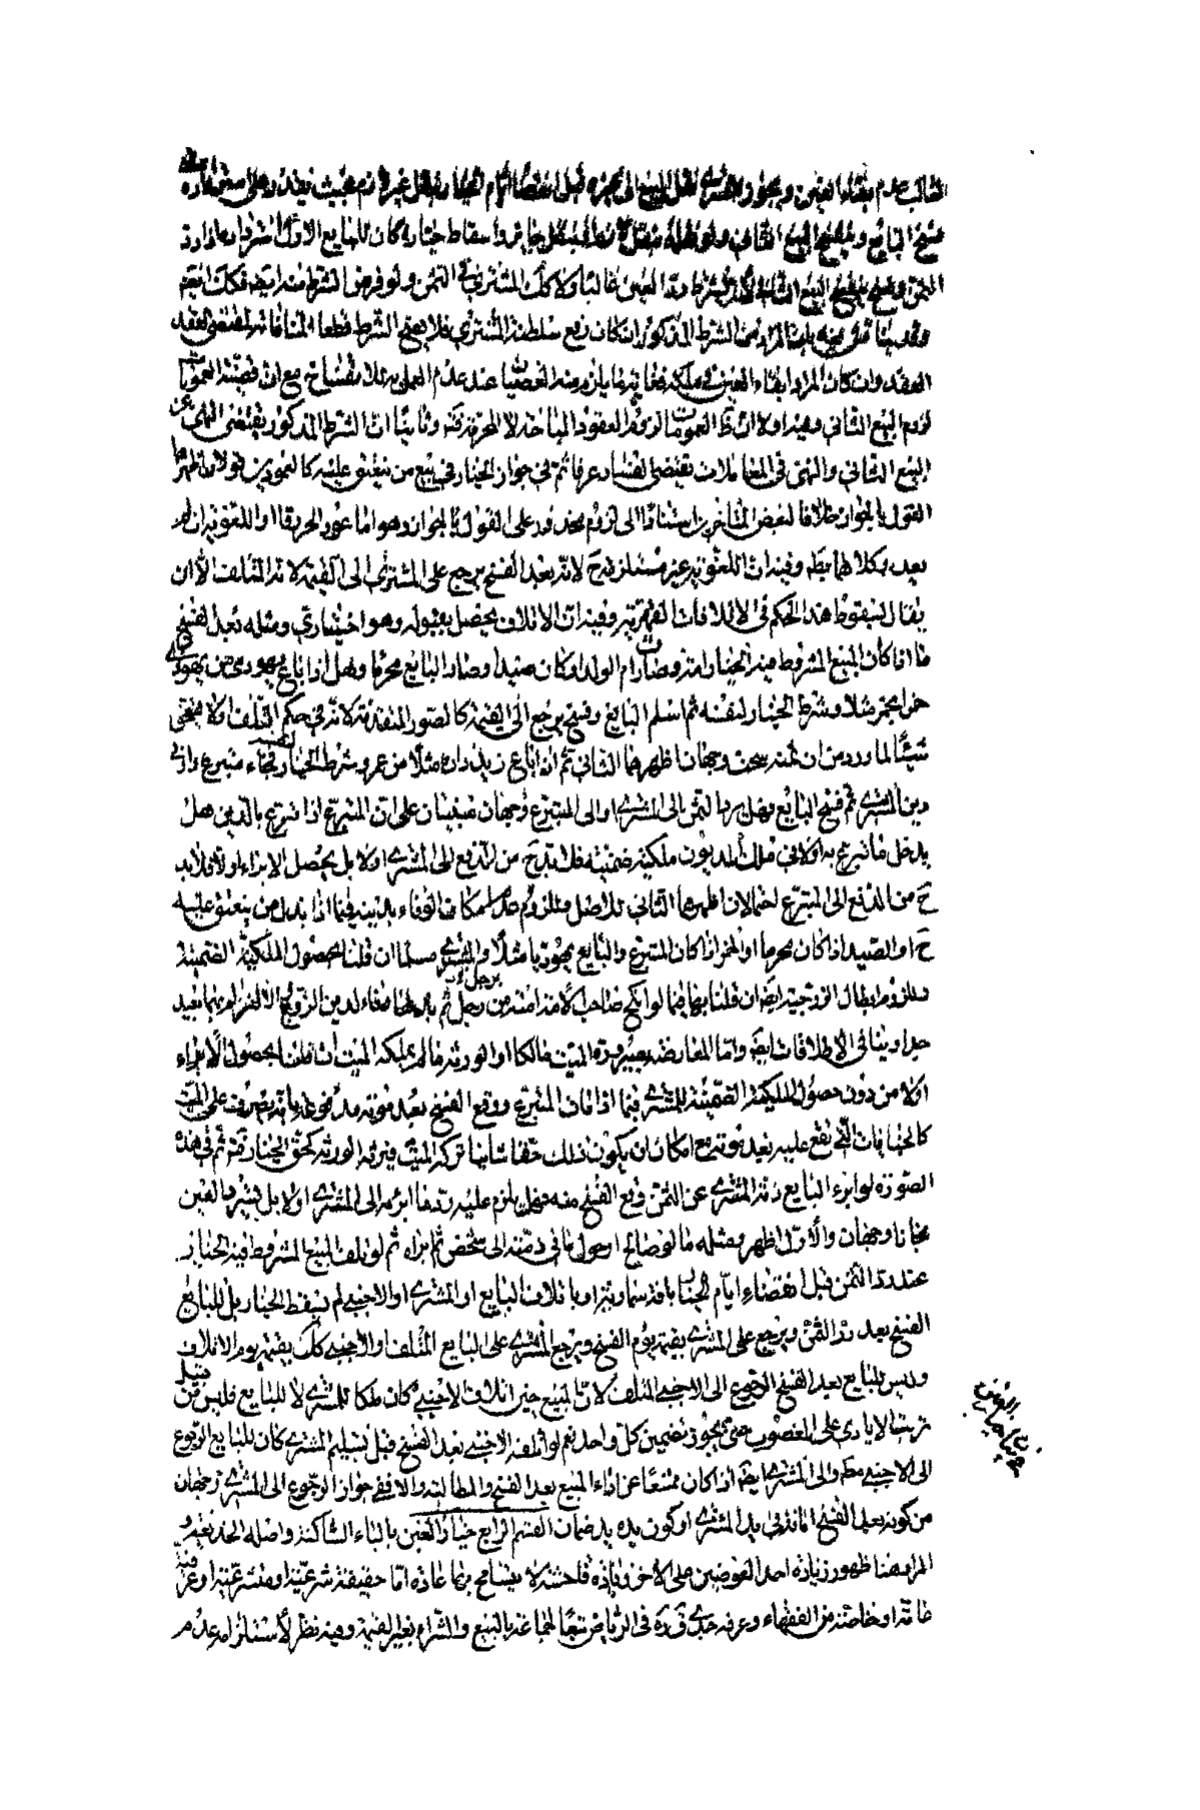 الغالب عدم بقاء العين ويجوز للمشتري نقل المبيع الى غيره قبل انقضاء ايام الخيار بنقل غير لازم بحيث
فسخ البايع وينفسخ البيع الثاني ولو نقله بنقل لازم فالنقل جايز واسقاط خياره كان للبايع الاول اذا رد
الثمن وفسخ البيع الشرط رد العين غالبا ولا كك المشتري في الثمن ولو فرض الشرط منه ايضا فكك
المراد من الشرط المذكور ان كان رفع سلطنة المشتري فلا يصح الشرط قطعا لمنافاته لمقتضى العقد
العقد وان كان المراد ابقاء العين في ملكه فغايته ما يلزم منه العصيان عند عدم العمل به لا الانفساخ مع ان قضية العمومات
لزوم البيع الثاني وفيه اولا ان ظ العمومات لزوم العقود المباحة لا المحرمة وثانيا ان الشرط المذكور يقتضي النهي عن
البيع الثاني والنهي في المعاملات يقتضي الفساد عرفا ثم في جواز الخيار في بيع من ينعتق عليه كالعمودين قولان اظهرهما
القول بالجواز خلافا لبعض المتاخرين استنادا الى لزوم محذور على القول بالجواز وهو اما عود الحر رقا او اللغوية ان لم
يعد وكلاهما بط وفيه ان اللغوية غير مستلزمة ح لانه بعد الفسخ يرجع على المشتري الى القيمة لانه المتلف الا ان
يقال لسقوط هذا الحكم في الاتلافات القهرية وفيه ان الاتلاف يحصل بقبوله وهو اختياري ومثله بعد الفسخ
ما اذا كان المبيع المشروط فيه الخيار امة وصارت ام الولد او كان صيدا وصار البايع محرما وهل اذا باع يهودي من يهودي
خمرا بخمر مثلا وشرط الخيار لنفسه ثم اسلم البايع وفسخ يرجع الى القيمة كالصور المتقدمة لانه في حكم التلف او لا يستحق
شيئا لما ورد من ان ثمنه سحت وجهان اظهرهما الثاني ثم ان باع زيد داره مثلا من عمرو وشرط الخيار لنفسه فجاء متبرع وادى
دين المشتري ثم فسخ البايع فهل يرد الثمن الى المشتري او الى المتبرع وجهان مبنيان على ان المتبرع اذا تبرع بالدين هل
يدخل ما تبرع به اولا في ملك المديون ملكية ضمنية فلا بد ح من الدفع الى المشتري او لا بل يحصل الابراء اولا فلا بد
ح من الدفع الى المتبرع احتمالان اظهرهما الثاني للاصل وللزوم عدم امكان الوفاء بالدين فيما اذا بذل من ينعتق عليه
ح او الصيد اذا كان محرما او الخمر اذا كان المتبرع والبايع يهوديا مثلا والمشتري مسلما ان قلنا بحصول الملكية الضمنية
وللزوم ابطال الزوجية ايضا ان قلنا بها فيما لو انكح صاحب الامة امته من رجل ثم بذلها وفاء لدين الزوج الا ان التزام بها بعيد
جدا وينافي الاطلاقات ايضا واما المعارضة بصيرورة الميت مالكا او الورثة ما لم يملكه الميت ان قلنا بحصول الابراء
اولا من دون حصول الملكية الضمنية للمشتري فيما اذا مات المتبرع ووقع الفسخ بعد موته مدفوعة بانه يصرف على الميت
كالجنايات التي تقع عليه بعد موته مع امكان ان يكون ذلك حقا شانيا تركه الميت فيرثه الورثة كحق الخيار ثم في هذه
الصورة لو ابرء البايع ذمة المشتري عن الثمن وقع الفسخ منه فهل يلزم عليه رد ما ابرئه الى المشتري او لا بل يسترد العين
مجانا وجهان والاول اظهر ومثله ما لو صالح او حول ما في ذمته الى شخص ثم ابراه ثم لو تلف المبيع المشروط فيه الخيار
عند رد الثمن قبل انقضاء ايام الخيار بافة سماوية او باتلاف البايع او المشتري او الاجنبي لم يسقط الخيار بل للبايع
الفسخ بعد رد الثمن ويرجع على المشتري بقيمة يوم الفسخ ويرجع المشتري على البايع المتلف او الاجنبي كك بقيمة يوم الاتلاف
وليس للبايع بعد الفسخ الرجوع الى الاجنبي المتلف لان المبيع حين اتلاف الاجنبي كان ملكا للمشتري لا للبايع فليس من قبيل
ترتب الايادي على المغصوب حتى يجوز تضمين كل واحد نعم لو اتلفه الاجنبي بعد الفسخ قبل تسليم المشتري كان للبايع الرجوع
الى الاجنبي مط والى المشتري ايضا اذا كان ممتنعا عن اداء المبيع بعد الفسخ والمطالبة والا ففي جواز الرجوع الى المشتري وجهان
من كونه بعد الفسخ امانة في يد المشتري او كون يده يد ضمان القسم الرابع خيار الغبن بالباء الساكنة واصله الخديعة و
المراد هنا ظهور زيادة احد العوضين على الاخر زيادة فاحشة لا يتسامح بها عادة اما حقيقة شرعية او متشرعية او عرفية
عامة او خاصة من الفقهاء وعرفه جدي قده في الرياض تبعا لجماعة بالبيع والشراء بغير القيمة وفيه نظر لاستلزامه عدم